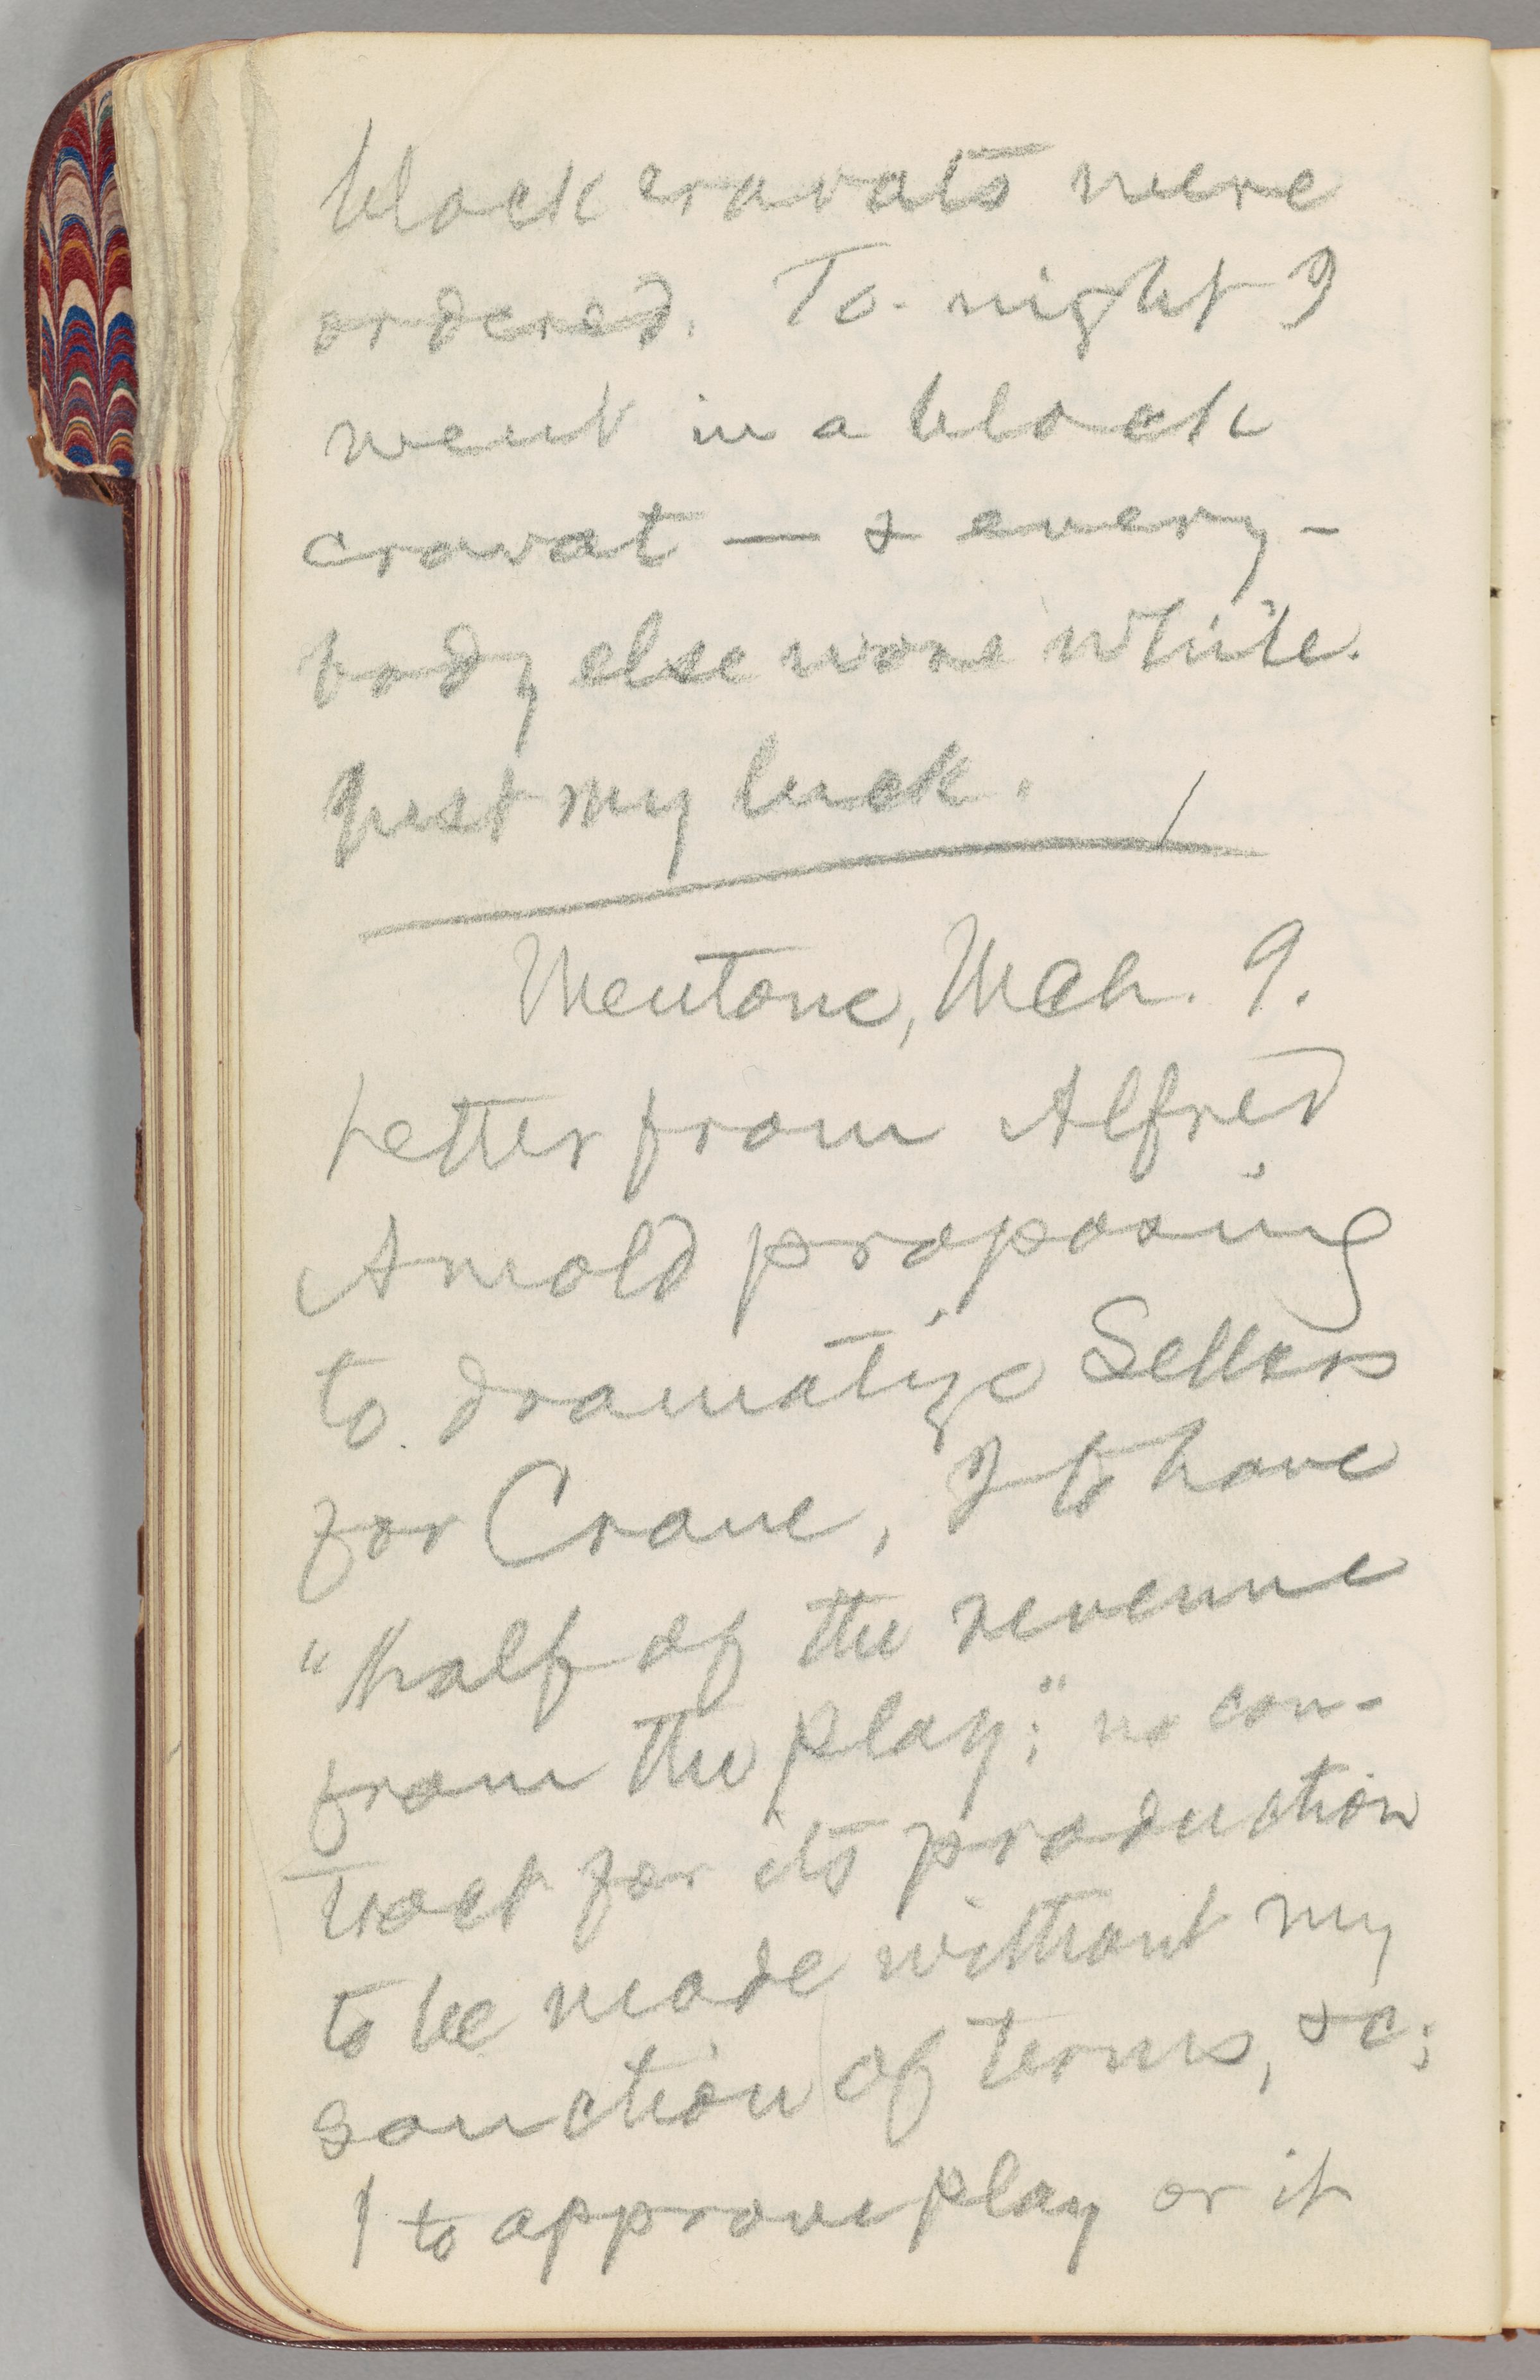 black cravats were
ordered. To-night I
went in a black
cravat — & every-
body else wore white.
Just my luck.
Mentone, Mch. 9.
Letter from Alfred
Arnold proposing
to dramatize Sellers
for Crane, I to have
"half of the revenue
from the play;" no con-
tract for its production
to be made without my
sanction of terms, &c;
I to approve play or it